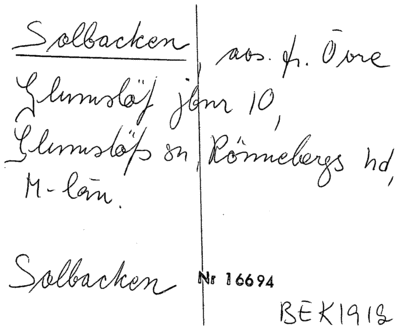 Solbacken, avs. fr. Övre
Glumslöf jbnr 10,
Glumslöfs sn, Rönnebergs hd,
M-län.
Solbacken Nr 16694
BEK1918